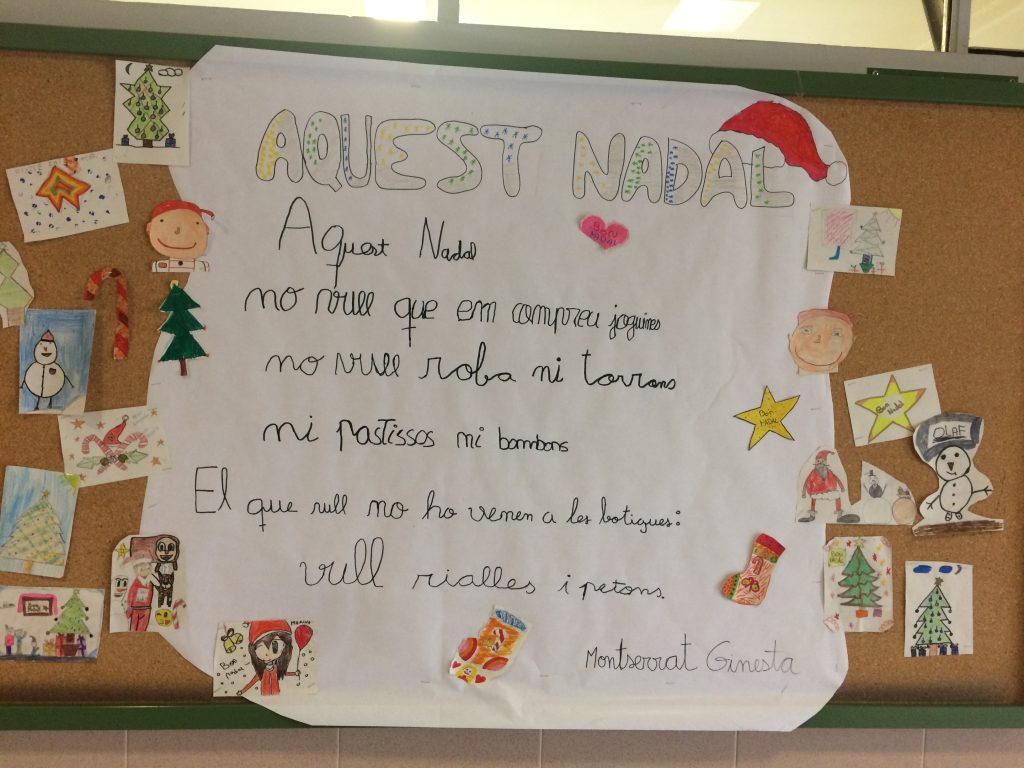 AQUEST NADAL
BON NADAL
Aquest Nadal
no vull que em compreu joguines
no vull roba ni torrons
ni pastissos ni bombons
El que vull no ho venen a les botigues:
vull rialles i petons.
Montserrat Ginesta
Bon NADAL
Bon Nadal
OLAF
Bon nadal